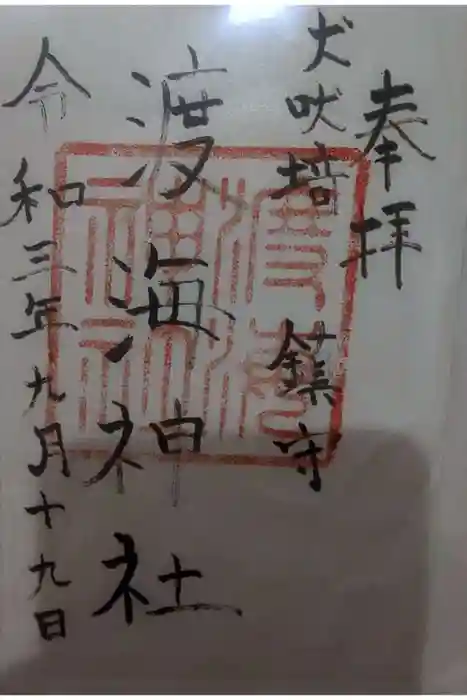 奉拝
犬吠埼 鎮守
渡海神社
令和三年九月十九日
渡海神社